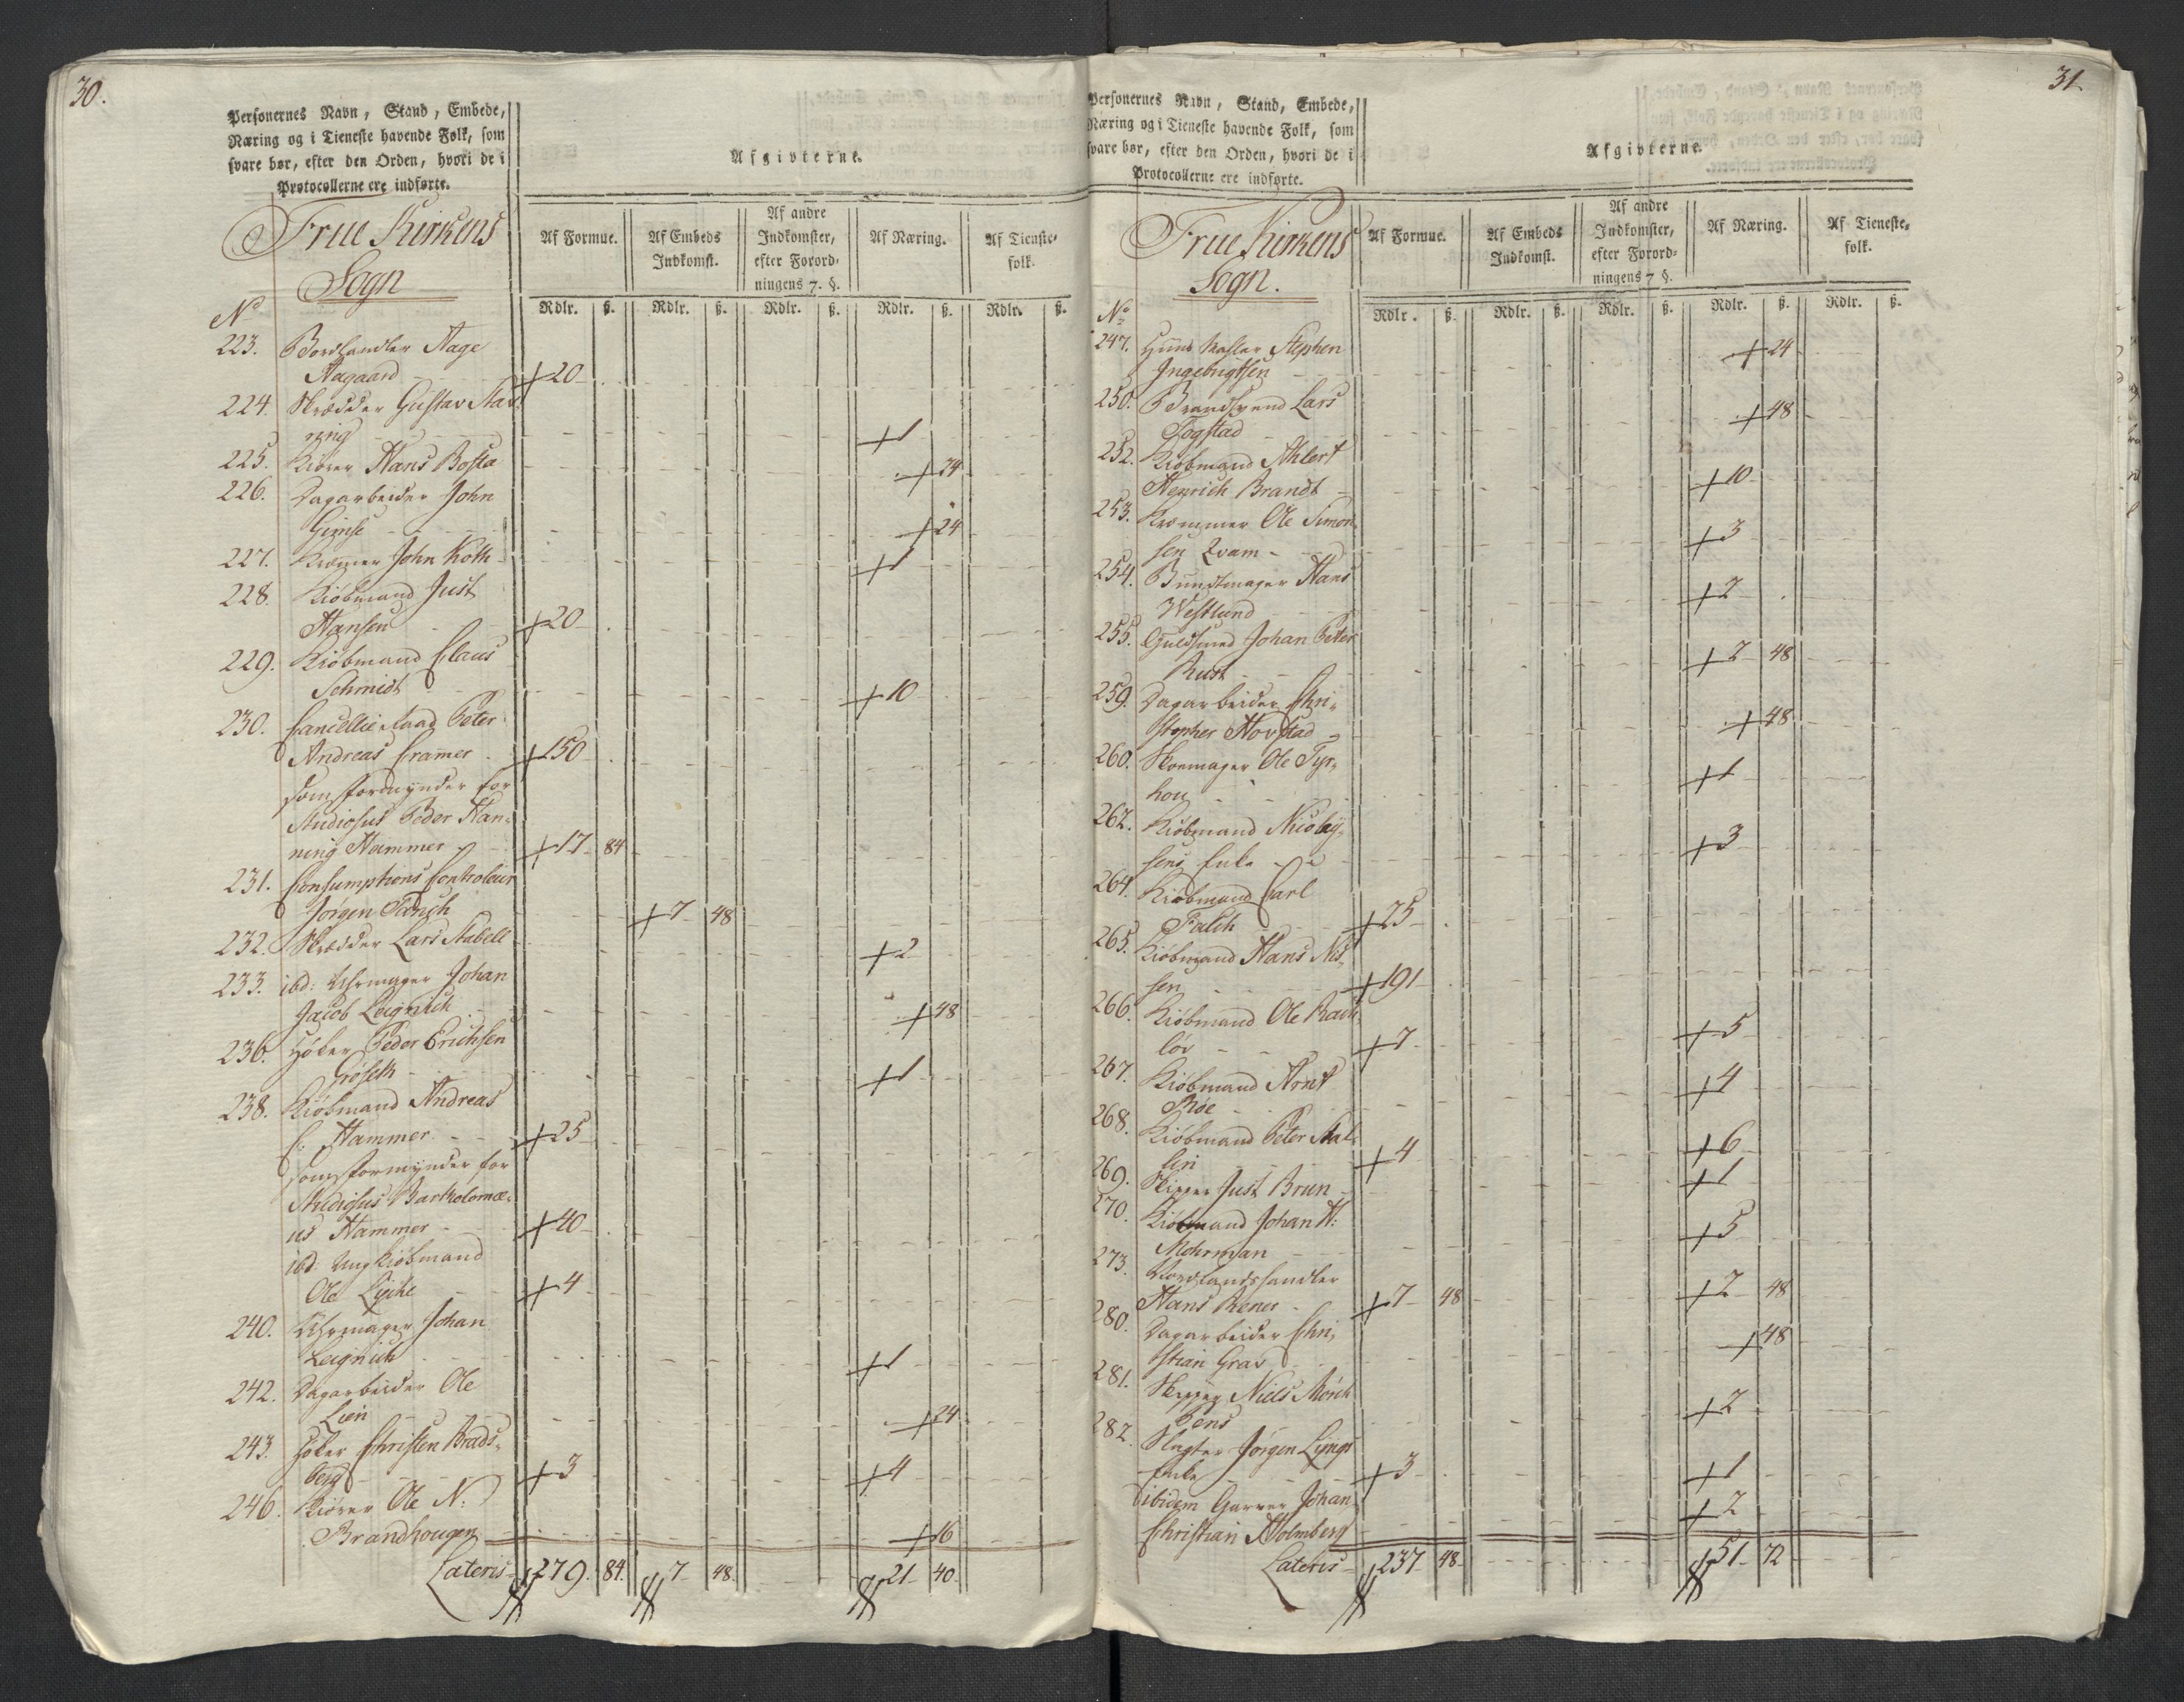 30.
Personernes Navn, Stand, Embede,
Næring og i Tieneste havende Folk, som
svare bør, efter den Orden, hvori de i
Protocollerne ere indførte.
Afgivterne.
Frue Kirkens
Sogn
Af Formue.
Af Embeds
Indkomst.
Af andre
Indkomster,
efter Forord-
ningens 7. §.
Af Næring.
Af Tieneste-
folk.
Rdlr. ß. Rdlr. ß. Rdlr. ß. Rdlr. ß. Rdlr. ß.
No
223. Bordhandler Aage
Aagaard + 20
224. Skrædder Gustav
ning + 1
225. Kiører Hans Bosta + 24
226. Dagarbeider John
Gimse + 24
227. Kræmer John Koth + 1
228. Kiøbmand Just
Hansen + 20
229. Kiøbmand Claus
Schmidt + 10
230. Cancellieraad Peter
Andreas Cramer + 150
som Formynder for
Studiosus Peder Han-
ning Hammer + 17 84
231. Consumptions Controleur
Jørgen + 7 48
232. Skrædder Lars Stabell + 2
233. ibd: Uhrmager Johan
Jacob Leignich + 48
236. Høker Peder Erichsen
Grøseth + 1
238. Kiøbmand Andreas
C: Hammer + 25
som Formynder for
Studiosus Bartholomæ-
us Hammer + 40
ibd: Ung Kiøbmand
Ole Lycke + 4
240. Uhrmager Johan
Leignich + 1
242. Dagarbeider Ole
Lien + 24
243. Høker Christen Brads-
berg + 3 + 4
246. Kiører Ole N:
Brandhougen + 16
Lateris 279. 84. 7 48. 21 40
31.
Personernes Navn, Stand, Embede,
Næring og i Tieneste havende Folk, som
svare bør, efter den Orden, hvori de i
Protocollerne ere indførte.
Afgivterne.
Frue Kirkens
Sogn.
Af Formue.
Af Embeds
Indkomst.
Af andre
Indkomster,
efter Forord-
ningens 7 §.
Af Næring.
Af Tieneste-
folk.
Rdlr. ß. Rdlr. ß. Rdlr. ß. Rdlr. ß. Rdlr. ß.
No
247. Stephen
Ingebrigtsen + 24
250. Brandsvend Lars
Fogstad + 48
252. Kiøbmand Ahlert
Henrich Brandt + 10
253. Kræmmer Ole Simon-
sen Qvam + 3
254. Bundtmager Hans
Westlund + 2
255. Guldsmed Johan Peter
Rust + 2 48
259. Dagarbeider Chri-
stopher Hovstad + 48
260. Skoemager Ole Tyr-
hou + 1
262. Kiøbmand Nicolay-
sens Enke + 3
264. Kiøbmand Carl
Falch + 25
265. Kiøbmand Hans Nis-
sen + 191
266. Kiøbmand Ole Rach-
løv + 7 + 5
267. Kiøbmand Arnt
Røe + 4
268. Kiøbmand Peter Stal-
+ 4 + 6
269. Skipper Just Brun + 1
270. Kiøbmand Johan H:
Mohrman + 5
273. Nordlandshandler
Hans Rener + 7 48 + 2 48
280. Dagarbeider Chri-
stian Grav + 48
281. Skipper Niels Mørch
Jens + 2
282. Slagter Jørgen Lyngs
Enke + 3 + 1
ibidem Garver Johan
Christian Holmberg + 2
Lateris 237 48 51 72